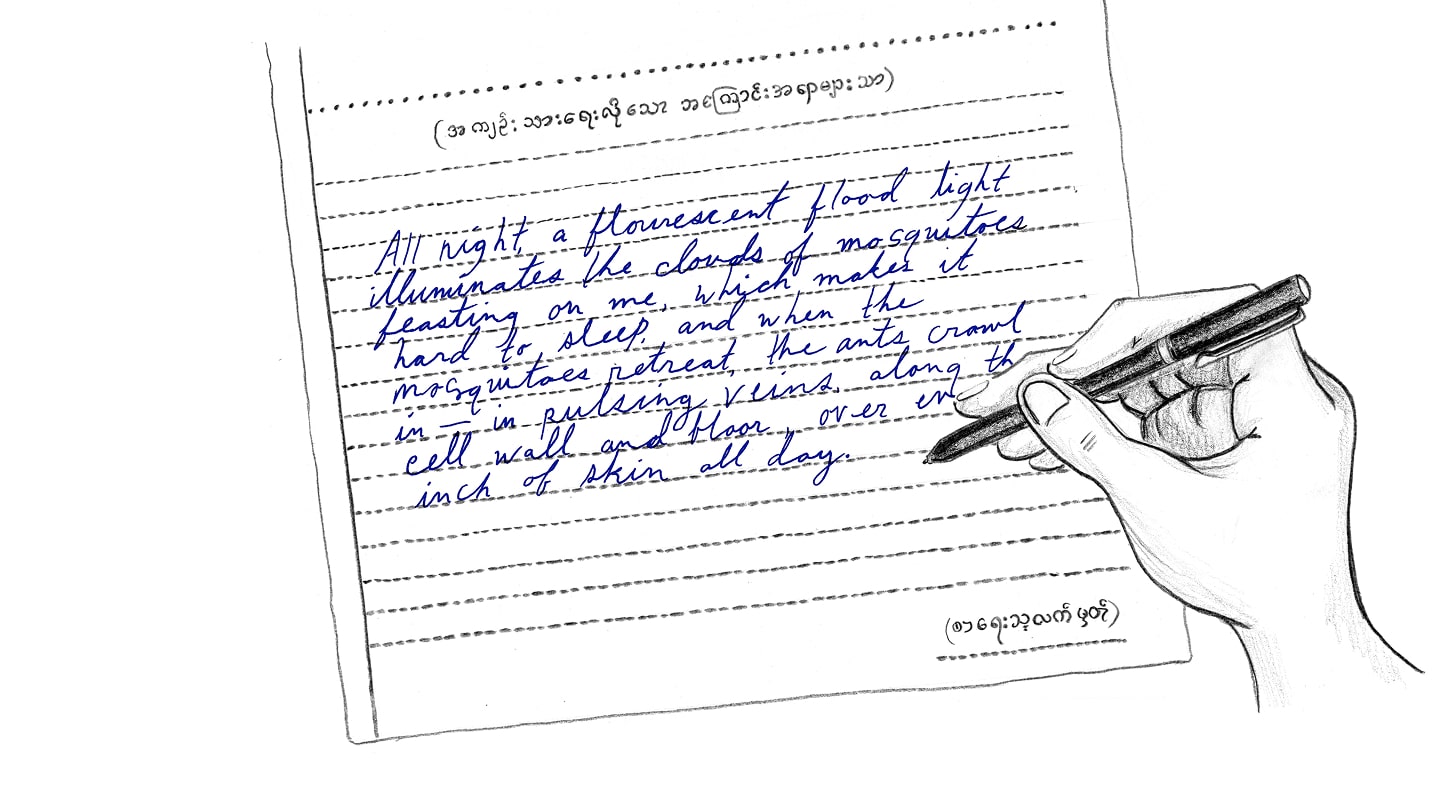 (အကျဉ်းသားရေးလိုသော အကြောင်းအရာများသာ)
All night, a flourescent flood light
illuminates the clouds of mosquitoes
feasting on me, which makes it
hard to sleep, and when the
mosquitoes retreat, the ants crawl
in — in pulsing veins, along th
cell wall and floor, over ev
inch of skin all day.
(စာရေးသူလက်မှတ်)